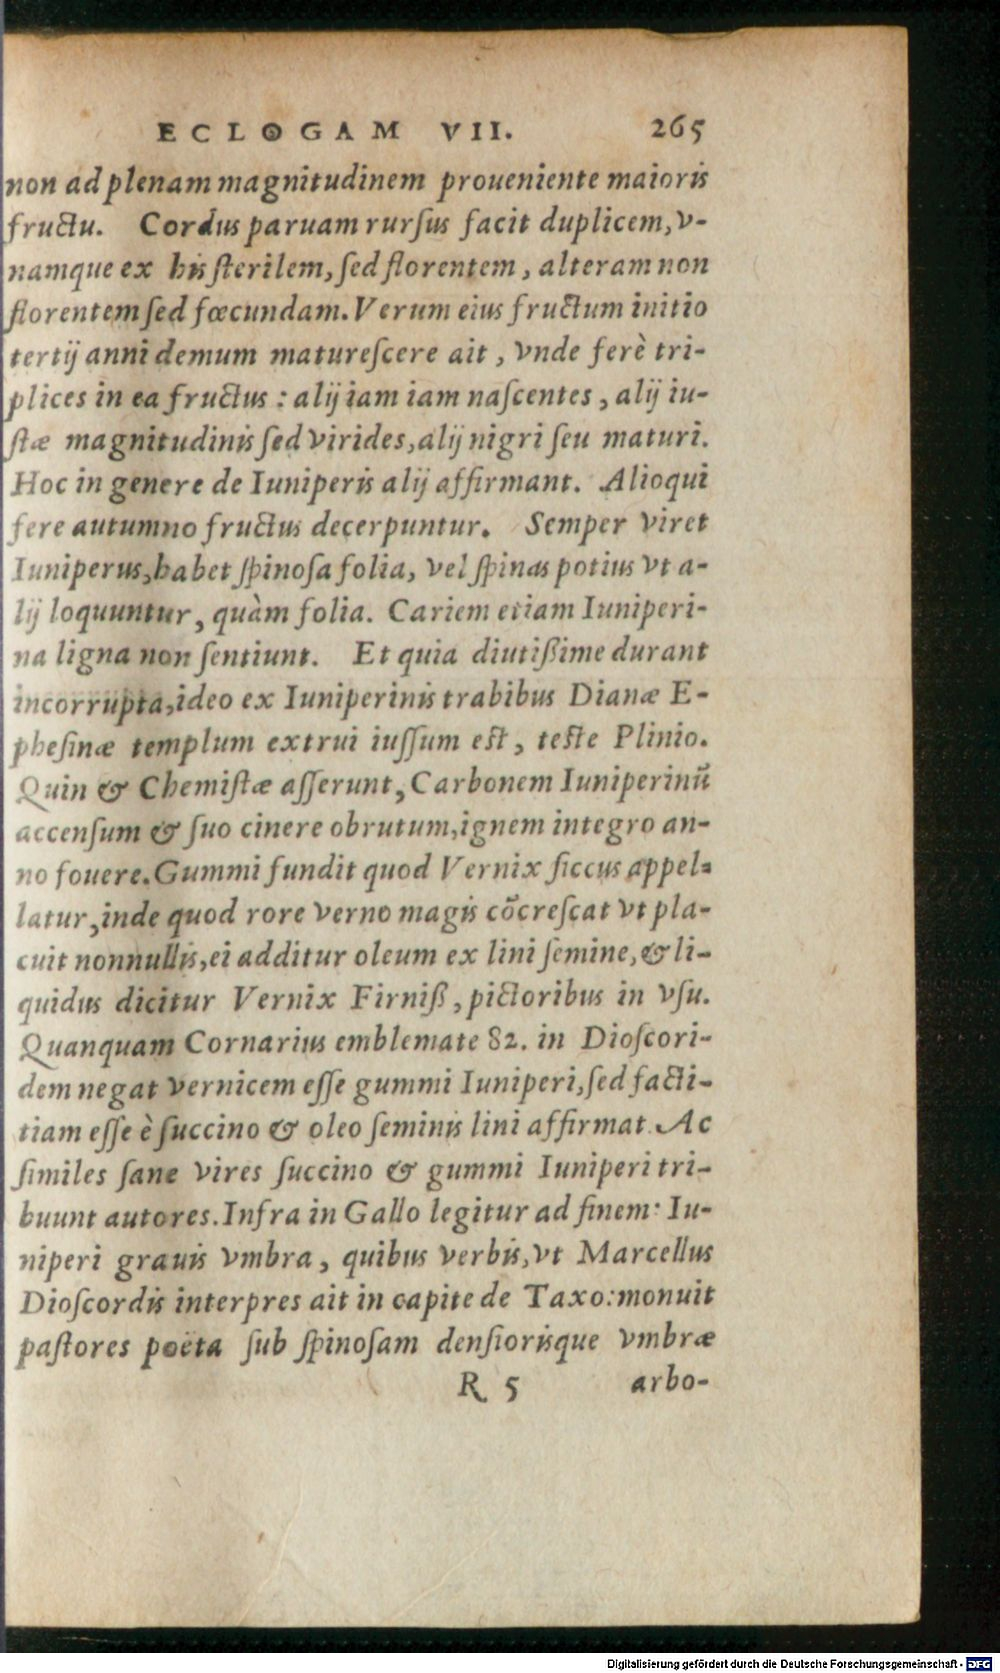 ECLOGAM VII. 265
non ad plenam magnitudinem proueniente maioris
fructu. Cordus paruam rursus facit duplicem, v-
namque ex his sterilem, sed florentem, alteram non
florentem sed fœcundam. Verum eius fructum initio
tertij anni demum maturescere ait, vnde ferè tri-
plices in ea fructus: alij iam iam nascentes, alij iu-
stæ magnitudinis sed virides, alij nigri seu maturi.
Hoc in genere de Iuniperis alij affirmant. Alioqui
fere autumno fructus decerpuntur. Semper viret
Iuniperus, habet spinosa folia, vel spinas potius vt a-
lij loquuntur, quàm folia. Cariem etiam Iuniperi-
na ligna non sentiunt. Et quia diutißime durant
incorrupta, ideo ex Iuniperinis trabibus Dianæ E-
phesinæ templum extrui iussum est, teste Plinio.
Quin & Chemistæ asserunt, Carbonem Iuniperinũ
accensum & suo cinere obrutum, ignem integro an-
no fouere. Gummi fundit quod Vernix siccus appel-
latur, inde quod rore verno magis cõcrescat vt pla-
cuit nonnullis, ei additur oleum ex lini semine, & li-
quidus dicitur Vernix Firniß, pictoribus in vsu.
Quanquam Cornarius emblemate 82. in Dioscori-
dem negat vernicem esse gummi Iuniperi, sed facti-
tiam esse è succino & oleo seminis lini affirmat. Ac
similes sane vires succino & gummi Iuniperi tri-
buunt autores. Infra in Gallo legitur ad finem: Iu-
niperi grauis vmbra, quibus verbis, vt Marcellus
Dioscordis interpres ait in capite de Taxo: monuit
pastores poëta sub spinosam densiorisque vmbræ
R 5 arbo-
Digitalisierung gefördert durch die Deutsche Forschungsgemeinschaft - DFG